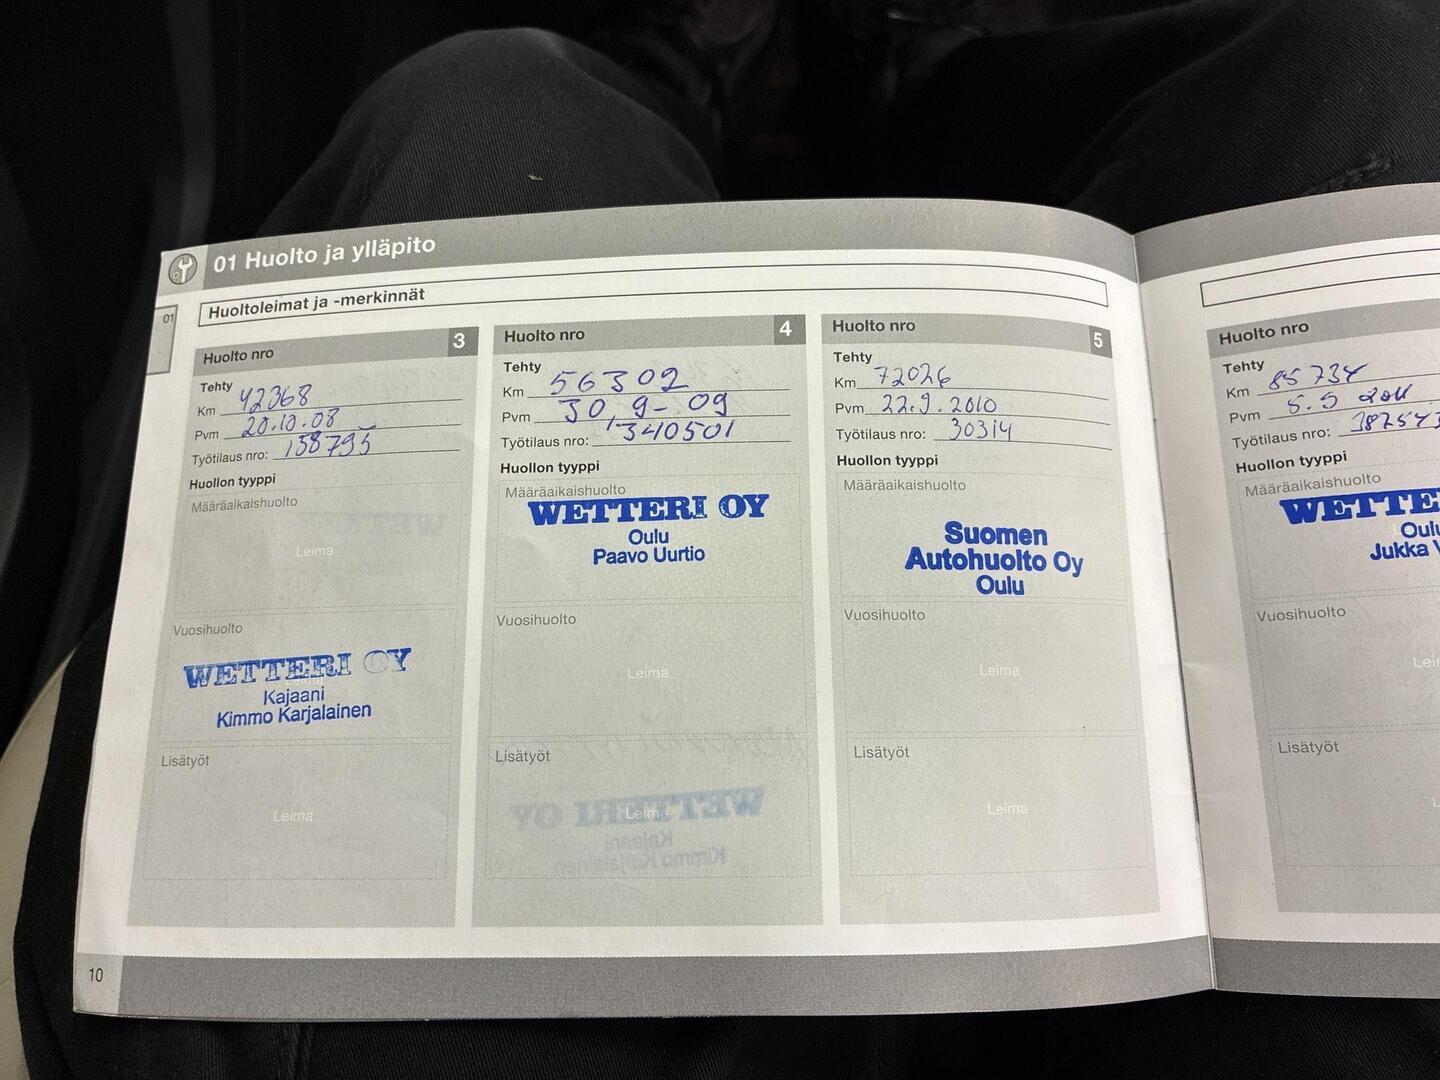 01 Huolto ja ylläpito
01
Huoltoleimat ja -merkinnät
Huolto nro 3
Tehty
Km 42368
Pvm 20.10.08
Työtilaus nro: 158795
Huollon tyyppi
Määräaikaishuolto
Leima
Vuosihuolto
WETTERI OY
Kajaani
Kimmo Karjalainen
Lisätyöt
Leima
Huolto nro 4
Tehty
Km 56302
Pvm 30.9-09
Työtilaus nro: 1340501
Huollon tyyppi
Määräaikaishuolto
WETTERI OY
Oulu
Paavo Uurtio
Vuosihuolto
Leima
Lisätyöt
WETTERI OY
Leima
Kajaani
Kimmo Karjalainen
Huolto nro 5
Tehty
Km 72026
Pvm 22.9.2010
Työtilaus nro: 30314
Huollon tyyppi
Määräaikaishuolto
Suomen
Autohuolto Oy
Oulu
Vuosihuolto
Leima
Lisätyöt
Leima
10
Huolto nro
Tehty
Km 85734
Pvm 5.5 2011
Työtilaus nro:
Huollon tyyppi
Määräaikaishuolto
Oulu
Jukka
Vuosihuolto
Lisätyöt